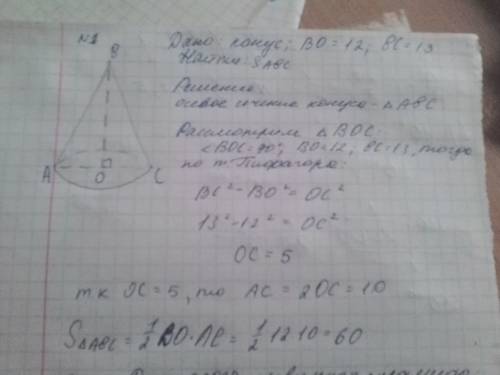 №1
B
A
O
C
Дано: конус; BO = 12; BC = 13
Найти: S ABC
Решение:
осевое сечение конуса - △ABC
Рассмотрим △BOC:
∠BOC = 90°, BO = 12, BC = 13, тогда
по т. Пифагора:
BC² - BO² = OC²
13² - 12² = OC²
OC = 5
т.к OC = 5, то AC = 2OC = 10
S△ABC = 1/2 BO · AC = 1/2 12 · 10 = 60